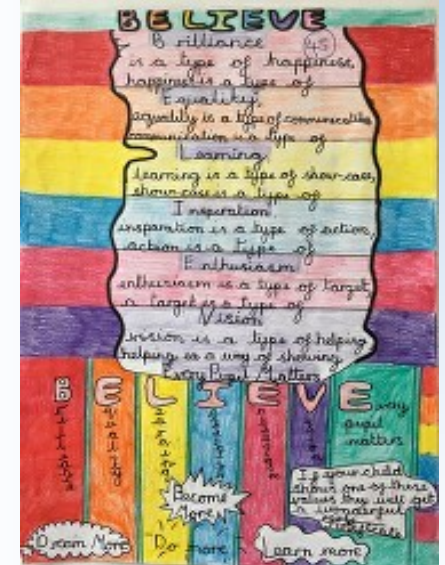 BELIEVE
Brilliance 45
is a type of happiness,
happiness is a type of
Equality,
equality is a type of communication
communication is a type of
Learning,
learning is a type of show-case,
show-case is a type of
Inspiration,
insparation is a type of action,
action is a type of
Enthusiasm
enthusiasm is a type of target,
a target is a type of
Vision
vision is a type of helping
helping is a way of showing
Every Pupil Matters
BELIEVE
every
pupil
matters
If your child
shows one of these
values they will get
a wonderful
Become
More
Dream More
Do more
Learn more